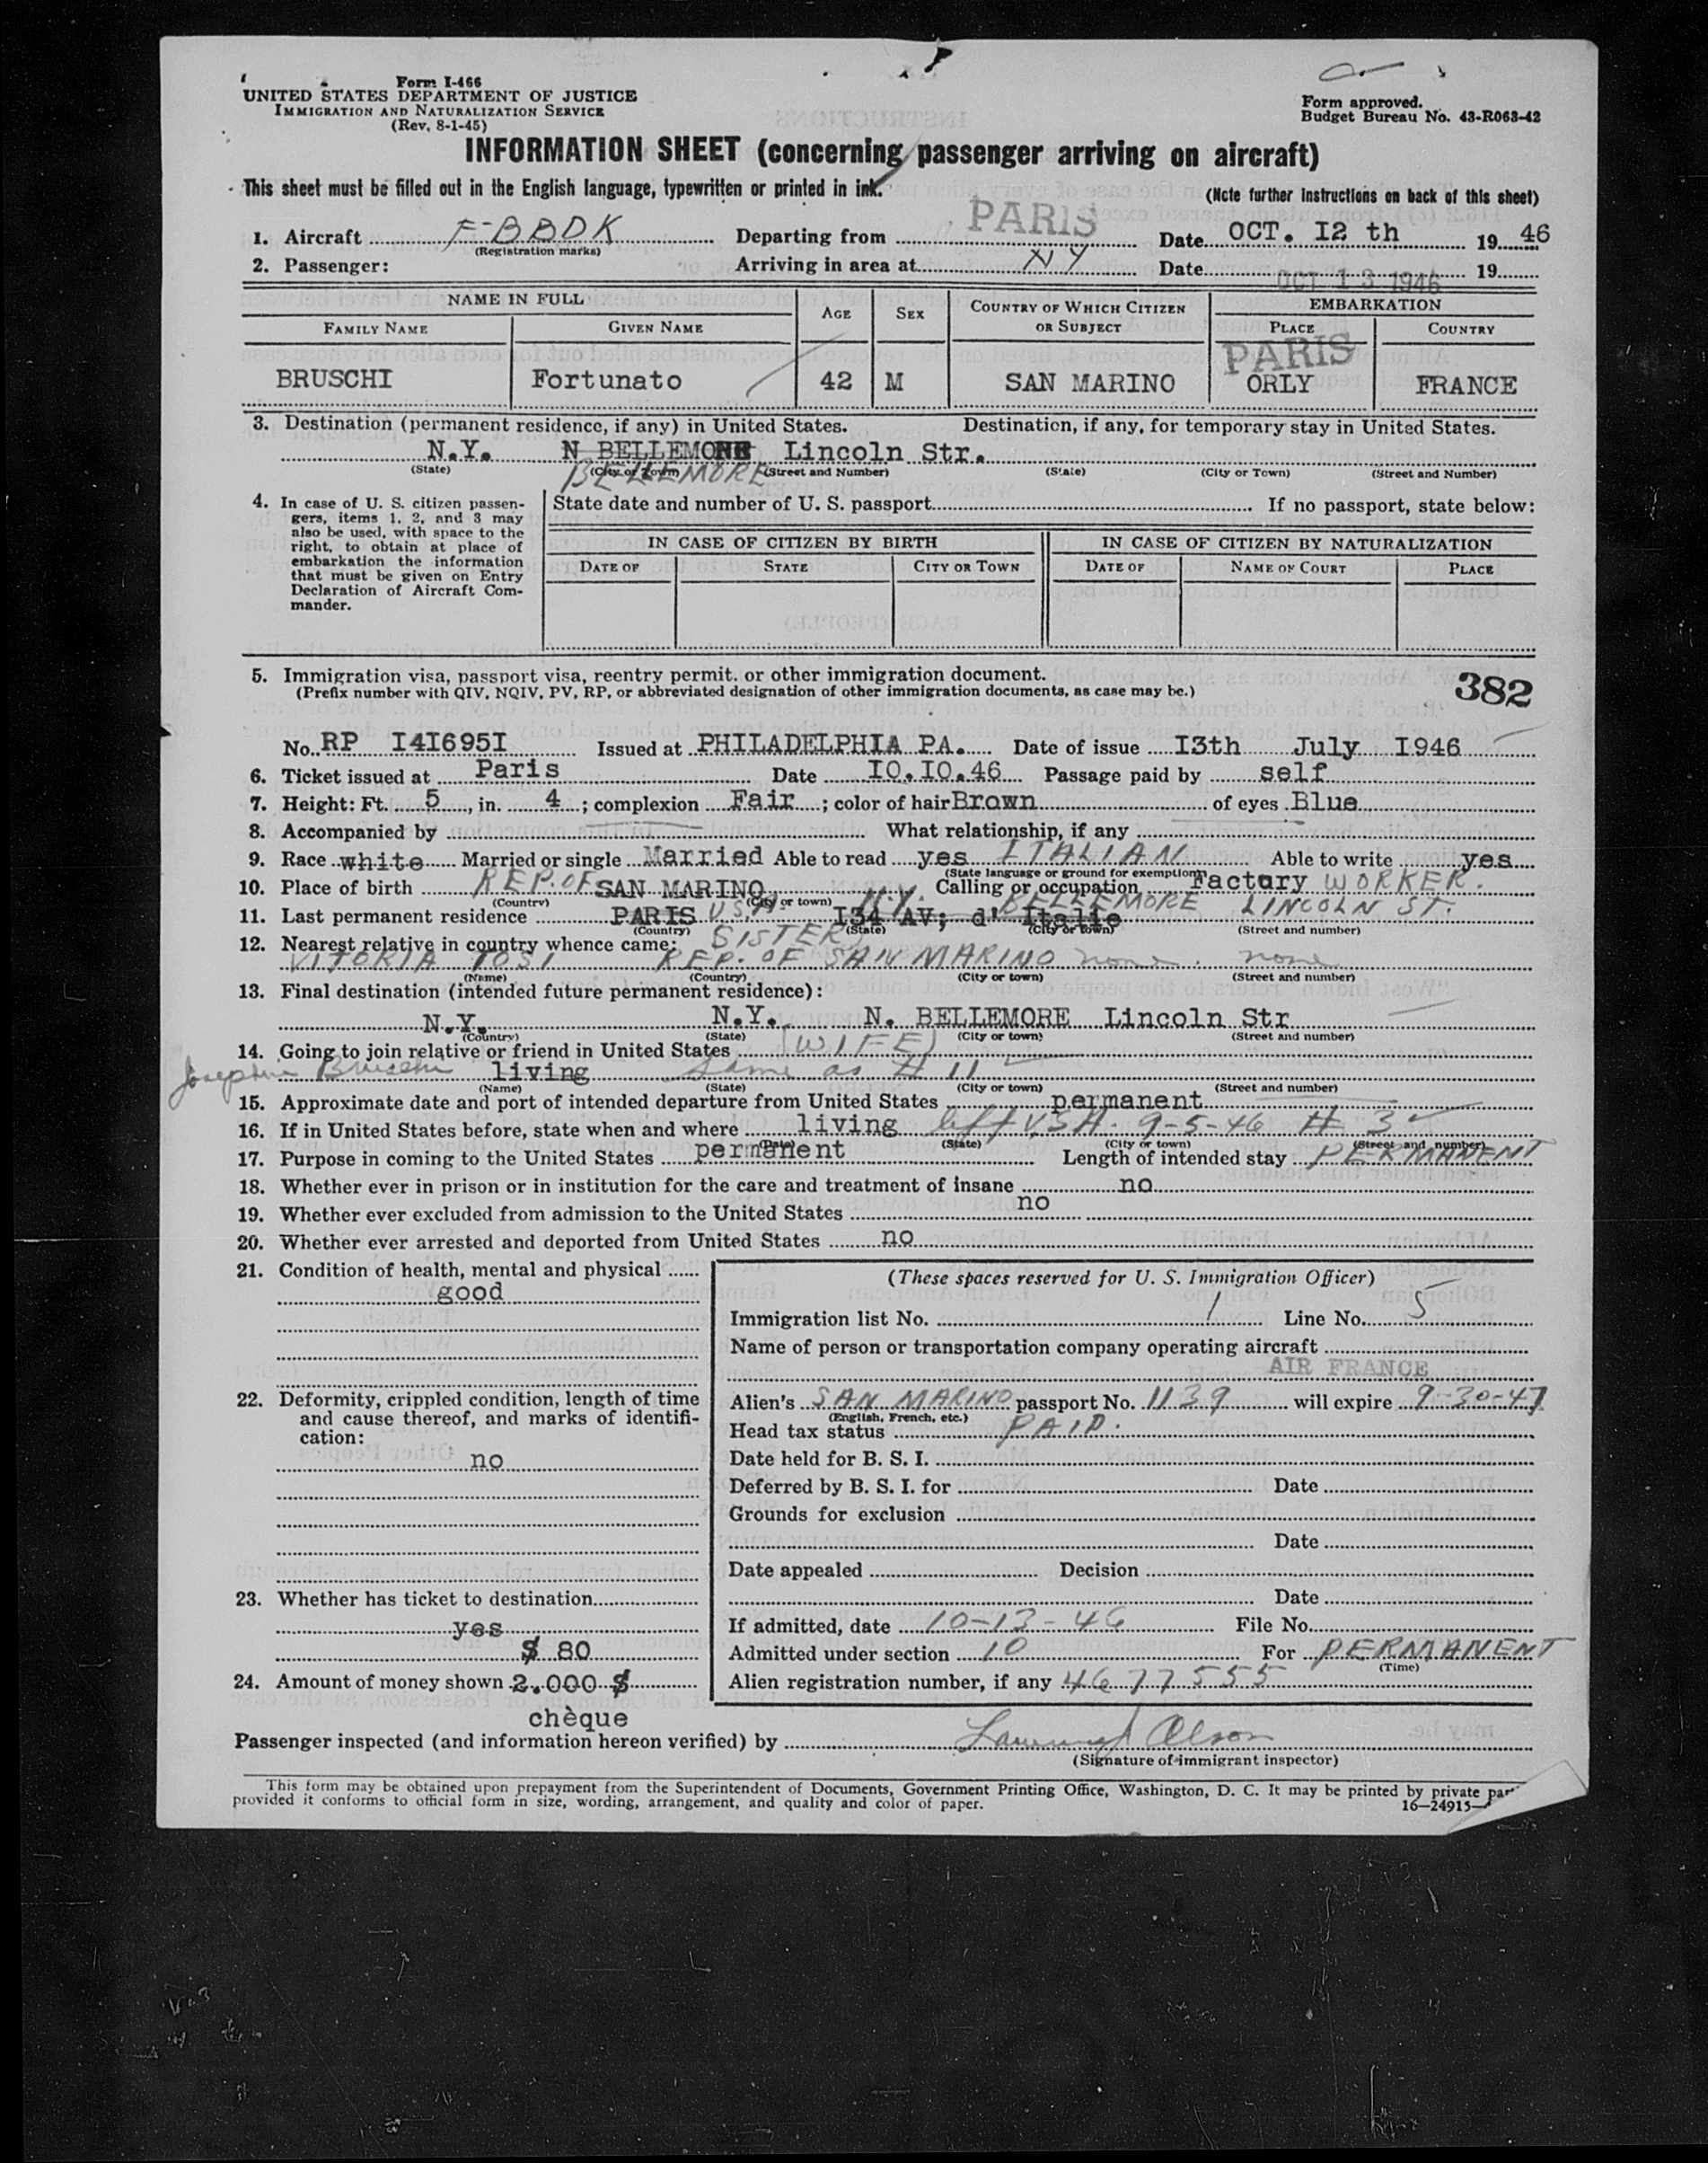 Form I-466
UNITED STATES DEPARTMENT OF JUSTICE
IMMIGRATION AND NATURALIZATION SERVICE
(Rev. 8-1-45)
Form approved.
Budget Bureau No. 43-R063-42
INFORMATION SHEET (concerning passenger arriving on aircraft)
This sheet must be filled out in the English language, typewritten or printed in ink.
(Note further instructions on back of this sheet)
1. Aircraft F-BBDK Departing from PARIS Date OCT. I2 th 19 46
(Registration marks)
2. Passenger: Arriving in area at NY Date OCT 13 1946 19
NAME IN FULL AGE SEX COUNTRY OF WHICH CITIZEN OR SUBJECT EMBARKATION
FAMILY NAME GIVEN NAME PLACE COUNTRY
PARIS
BRUSCHI Fortunato 42 M SAN MARINO ORLY FRANCE
3. Destination (permanent residence, if any) in United States. Destination, if any, for temporary stay in United States.
N.Y. N BELLEMORE Lincoln Str.
(State) (City or Town) (Street and Number) (State) (City or Town) (Street and Number)
BELLEMORE
4. In case of U. S. citizen passengers, items 1, 2, and 3 may also be used, with space to the right, to obtain at place of embarkation the information that must be given on Entry Declaration of Aircraft Commander.
State date and number of U. S. passport If no passport, state below:
IN CASE OF CITIZEN BY BIRTH IN CASE OF CITIZEN BY NATURALIZATION
DATE OF STATE CITY OR TOWN DATE OF NAME OF COURT PLACE
5. Immigration visa, passport visa, reentry permit, or other immigration document.
(Prefix number with QIV, NQIV, PV, RP, or abbreviated designation of other immigration documents, as case may be.)
382
No. RP I4I695I Issued at PHILADELPHIA PA. Date of issue I3th July I946
6. Ticket issued at Paris Date IO.IO.46 Passage paid by self
7. Height: Ft. 5, in. 4; complexion Fair; color of hair Brown of eyes Blue
8. Accompanied by What relationship, if any
9. Race white Married or single Married Able to read yes ITALIAN Able to write yes
(State language or ground for exemption)
10. Place of birth REP. OF SAN MARINO Calling or occupation Factory WORKER.
(Country) (City or town)
11. Last permanent residence PARIS U.S.A. N.Y. I34 AV; d' Italie BELLEMORE LINCOLN ST.
(Country) (State) (City or town) (Street and number)
12. Nearest relative in country whence came: SISTER)
VITORIA TOSI REP. OF SAN MARINO none. none
(Name) (Country) (City or town) (Street and number)
13. Final destination (intended future permanent residence):
N.Y. N.Y. N. BELLEMORE Lincoln Str
(Country) (State) (City or town) (Street and number)
14. Going to join relative or friend in United States (WIFE)
Josephine Bruschi living same as # 11
(Name) (State) (City or town) (Street and number)
15. Approximate date and port of intended departure from United States permanent
16. If in United States before, state when and where living left U.S.A. 9-5-46 # 3
(Date) (State) (City or town) (Street and number)
17. Purpose in coming to the United States permanent Length of intended stay PERMANENT
18. Whether ever in prison or in institution for the care and treatment of insane no
19. Whether ever excluded from admission to the United States no
20. Whether ever arrested and deported from United States no
21. Condition of health, mental and physical
good
22. Deformity, crippled condition, length of time and cause thereof, and marks of identification:
no
23. Whether has ticket to destination
yes
$ 80
24. Amount of money shown 2.000 $
chèque
(These spaces reserved for U. S. Immigration Officer)
Immigration list No. 1 Line No. 5
Name of person or transportation company operating aircraft
AIR FRANCE
Alien's SAN MARINO passport No. 1139 will expire 9-30-47
(English, French, etc.)
Head tax status PAID.
Date held for B. S. I.
Deferred by B. S. I. for Date
Grounds for exclusion
Date
Date appealed Decision
Date
If admitted, date 10-13-46 File No.
Admitted under section 10 For PERMANENT
(Time)
Alien registration number, if any 4677555
Passenger inspected (and information hereon verified) by Olson
(Signature of immigrant inspector)
This form may be obtained upon prepayment from the Superintendent of Documents, Government Printing Office, Washington, D. C. It may be printed by private
provided it conforms to official form in size, wording, arrangement, and quality and color of paper.
16—24915—